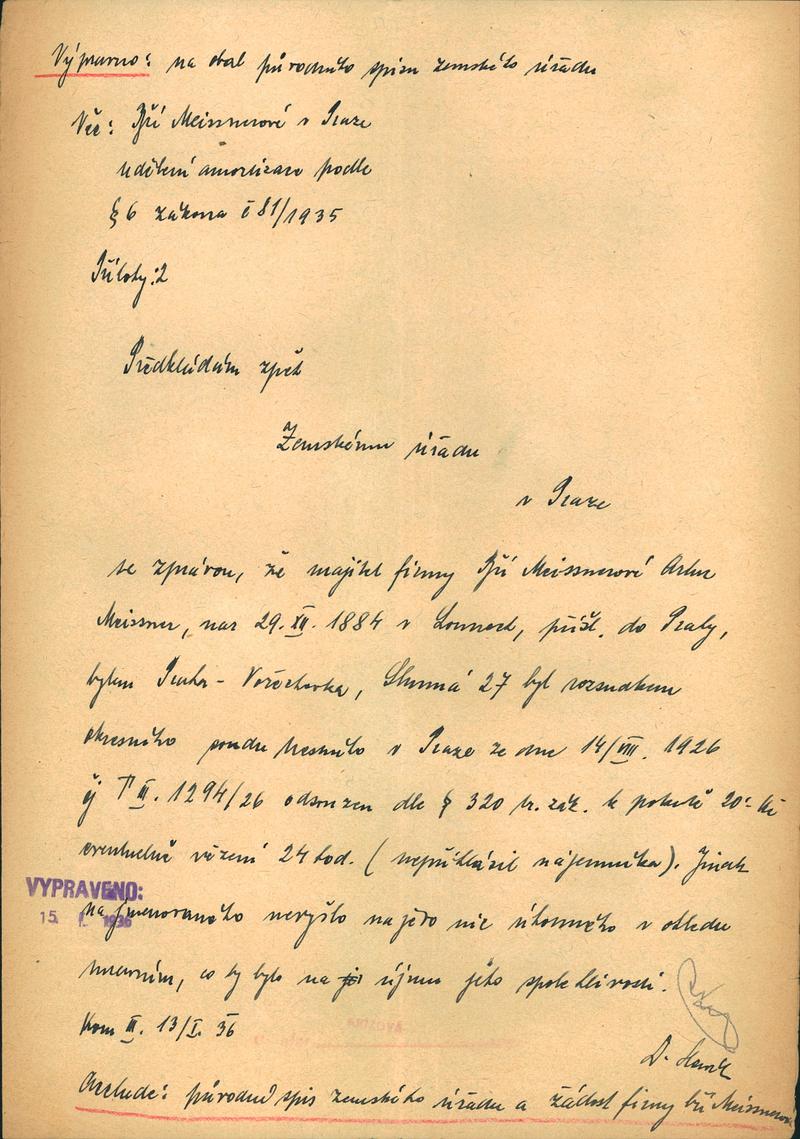 Výpravno: na obal původního spisu zemského úřadu
Věc: Bří Meissnerové v Praze
udělení amortisace podle
§ 6 zákona č 81/1935
Přílohy: 2
Předkládám zpět
Zemskému úřadu
v Praze
se zprávou, že majitel firmy Bří Meissnerové Artur
Meissner, nar 29. XII. 1884 v Lounech, přísl. do Prahy,
bytem Praha - Vořechovka, Slunná 27 byl rozsudkem
okresního soudu trestního v Praze ze dne 14/VIII. 1926
čj T III. 1294/26 odsouzen dle § 320 tr. zák. k pokutě 20·- Kč
eventuelně vězení 24 hod. (nepřihlásil nájemníka). Jinak
na jmenovaného nevyšlo najevo nic úhonného v ohledu
mravním, co by bylo na újmu jeho spolehlivosti.
VYPRAVENO:
15. I. 1936
Kom III. 13/I. 36
Dr
původní spis zemského úřadu a žádost firmy bří Meissnerov